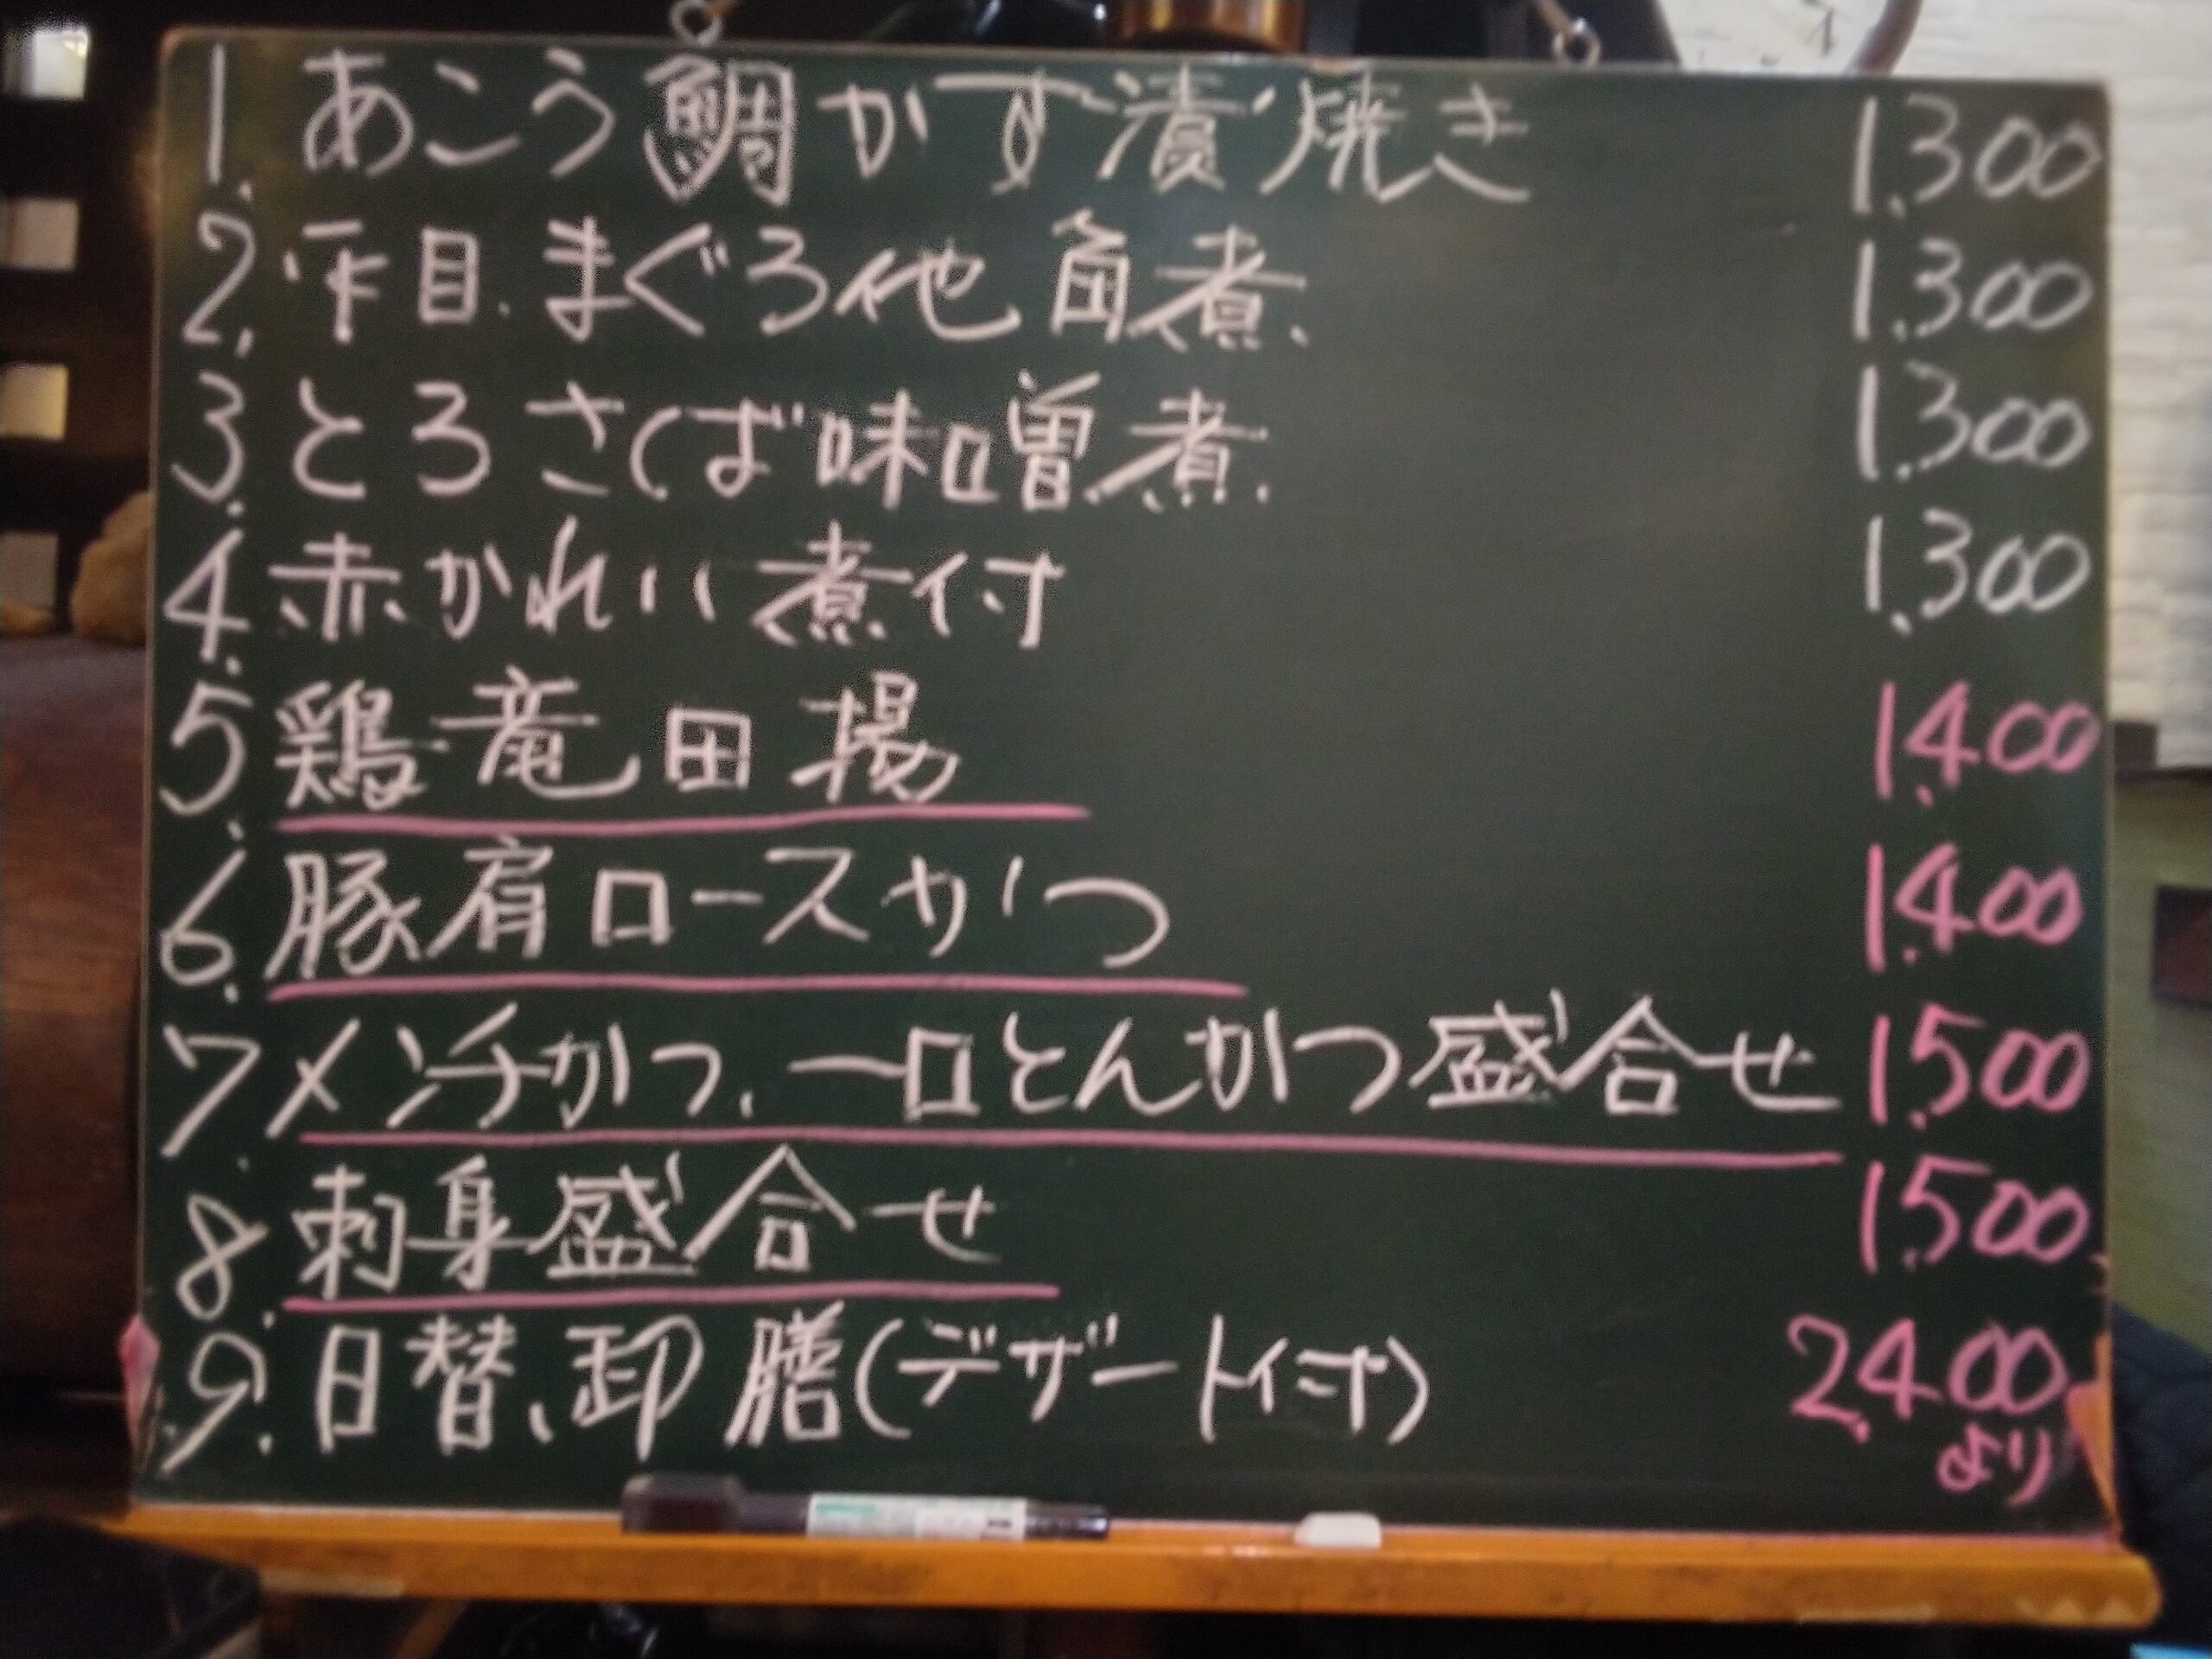 1. あこう鯛かす漬焼き 1.300
2. 平目.まぐろ他角煮. 1.300
3. とろさば味噌煮. 1.300
4. 赤かれい煮付 1.300
5. 鶏竜田揚 1.400
6. 豚肩ロースかつ 1.400
7. メンチかつ、一口とんかつ盛合せ 1.500
8. 刺身盛合せ 1.500
9. 日替、卸膳(デザート付) 2.400
より